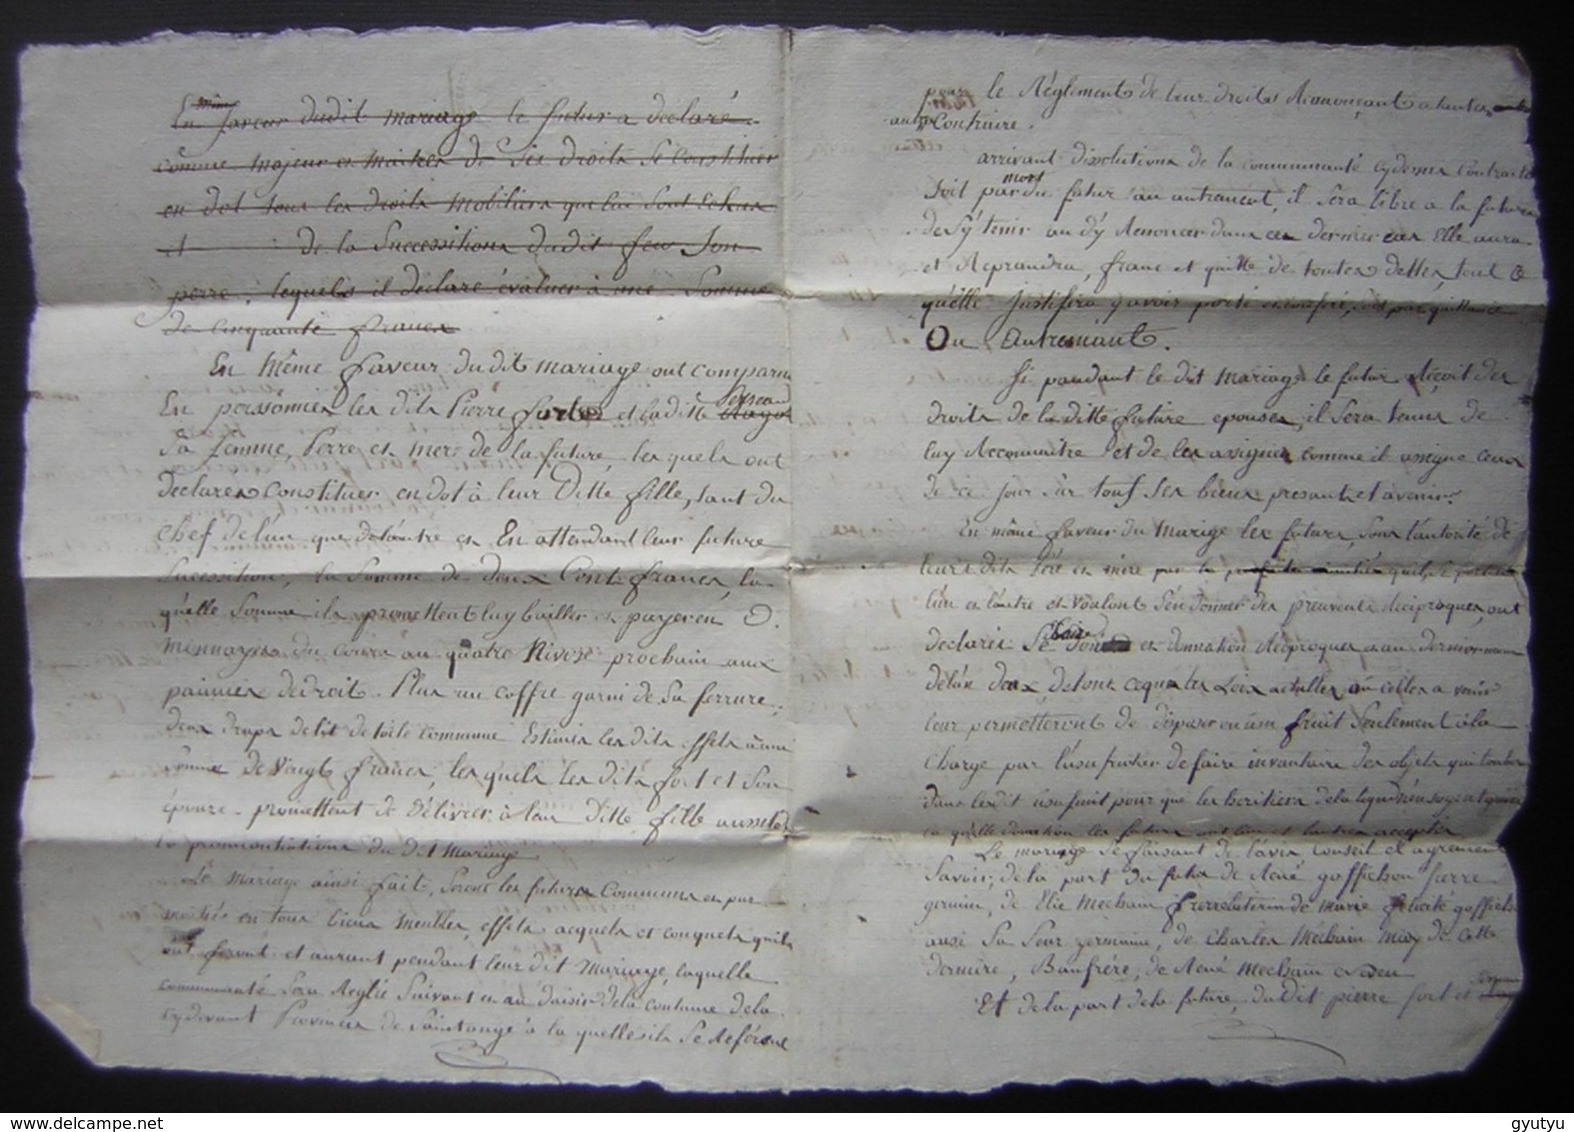 En faveur dudit mariage le futur a déclaré
comme majeur et maitre de ses droits se constituer
en dot tous les droits mobiliers que lui sont echus
et de la Successition dudit feu son
perre, lequels il déclare évaluer à une somme
de cinquante francs
En Même faveur du dit mariage ont comparu
En personnes les dits Pierre fort et la ditte
Sa femme, Perre et mere de la future, les quels ont
declarés Constituer en dot à leur Ditte fille, tant du
chef de l'un que de l'autre et En attendant leur future
Sucession, la Somme de deux Cent francs, la
quelle Somme ils promettent luy bailler et payer en
du cours au quatre Nivose prochain aux
de droit. Plus un coffre garni de sa ferrure,
deux draps de lit de toile commune Estimés les dits effets à une
Somme de vingt francs, les quels les dits fort et Son
épouze promettent de Délivrer à leur Ditte fille aussitot
la prononciations du dit Mariage
Le mariage ainsi fait, Seront les futurs Communs en par
moitiés en tous biens meubles, effets acquets et conquets quils
ont feront et auront pendant leur dit mariage, laquelle
communauté Sera Reglée Suivant et au daisir de la coutume de la
cydevant Province de Saintonge à la quelle ils Se Réferent
pour le Réglement de leur droits Renonçant a toutes
autre Contraire.
arrivant dissolutions de la communauté cydessus Contractée
Soit par mort du futur ou autrement, il sera libre a la future
de S'y tenir ou d'y Renoncer dans ce dernier cas Elle aura
et Reprandra, franc et quitte de toutes dettes tout ce
qu'elle Justifira y avoir porté et conferé, soit par quittance
Ou Autremant.
Si pandant le dit Mariage le futur Reçoit des
droits de la ditte future epouse, il Sera tenus de
luy Reconnaitre et de les assigner comme il assigne ceux
de ce jour sur touf ses bieux presants et avenir.
En même faveur du Mariage les futurs, sous l'autorité de
leurs dits Pere et mere
l'un et l'autre et voulant s'en donner des preuvent réciproques, ont
declarés Se faire et donnation Réciproques et au dernier
deux de tout ce que les Loix actuelles ou celles a venir
leur permetteront de disposer en usu fruit Seulement à la
Charge par l'usufruitier de faire invantaire des objets qui tomberont
dans les dit usufruit pour que les heritiers de la
la quelle donnation les futurs ont l'un et l'autre accepté
Le mariage Se faisant de l'avis Conseil et agrement
Savoir, de la part du futur de René goffichon frerre
germin, de Elie Mechain de marie felicité goffichon
ausi Sa Seur germaine, de Charles Mechain de cette
derniere, Baufrére, de René Mechain
Et de la part de la future, du dit pierre fort et
gyutyu